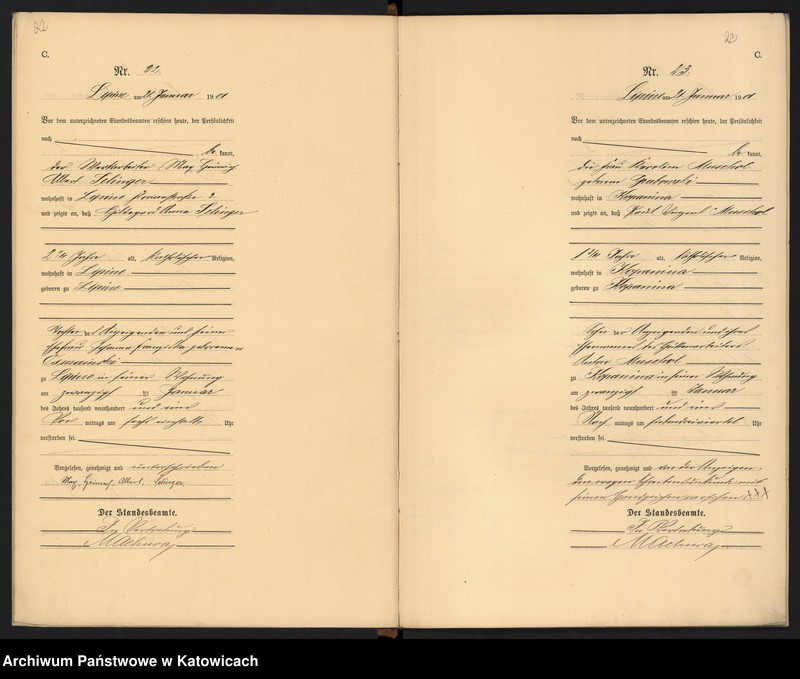 22
C.
Nr. 22.
Lipine am 21. Januar 1901
Vor dem unterzeichneten Standesbeamten erschien heute, der Persönlichkeit
nach
be kannt,
der Werkarbeiter Max Heinrich
Albert Selinger
wohnhaft in Lipine 2
und zeigte an, daß Hildegard Anna Selinger
2 Jahre alt, katholischer Religion,
wohnhaft in Lipine
geboren zu Lipine
Tochter des Anzeigenden und seiner
Ehefrau Johanna Franziska geborenen
zu Lipine in seiner Wohnung
am zwanzigsten Januar
des Jahres tausend neunhundert und eins
Vor mittags um sechs einhalb Uhr
verstorben sei.
Vorgelesen, genehmigt und unterschrieben
Max Heinrich Albert Selinger.
Der Standesbeamte.
In Vertretung
Machura
23
C.
Nr. 23.
Lipine am 21. Januar 1901
Vor dem unterzeichneten Standesbeamten erschien heute, der Persönlichkeit
nach
be kannt,
die Frau Karoline Muschol
geborene Grabowski
wohnhaft in Kopanina
und zeigte an, daß Paul Vinzent Muschol
1 Jahr alt, katholischer Religion,
wohnhaft in Kopanina
geboren zu Kopanina
Sohn der Anzeigenden und ihres
Ehemannes des Hüttenarbeiters
Muschol
zu Kopanina in seiner Wohnung
am zwanzigsten Januar
des Jahres tausend neunhundert und eins
Nach mittags um siebendreiviertel Uhr
verstorben sei.
Vorgelesen, genehmigt und von der Anzeigen-
den wegen Schreibensunkunde mit
Handzeichen versehen XXX
Der Standesbeamte.
In Vertretung
Machura
Archiwum Państwowe w Katowicach